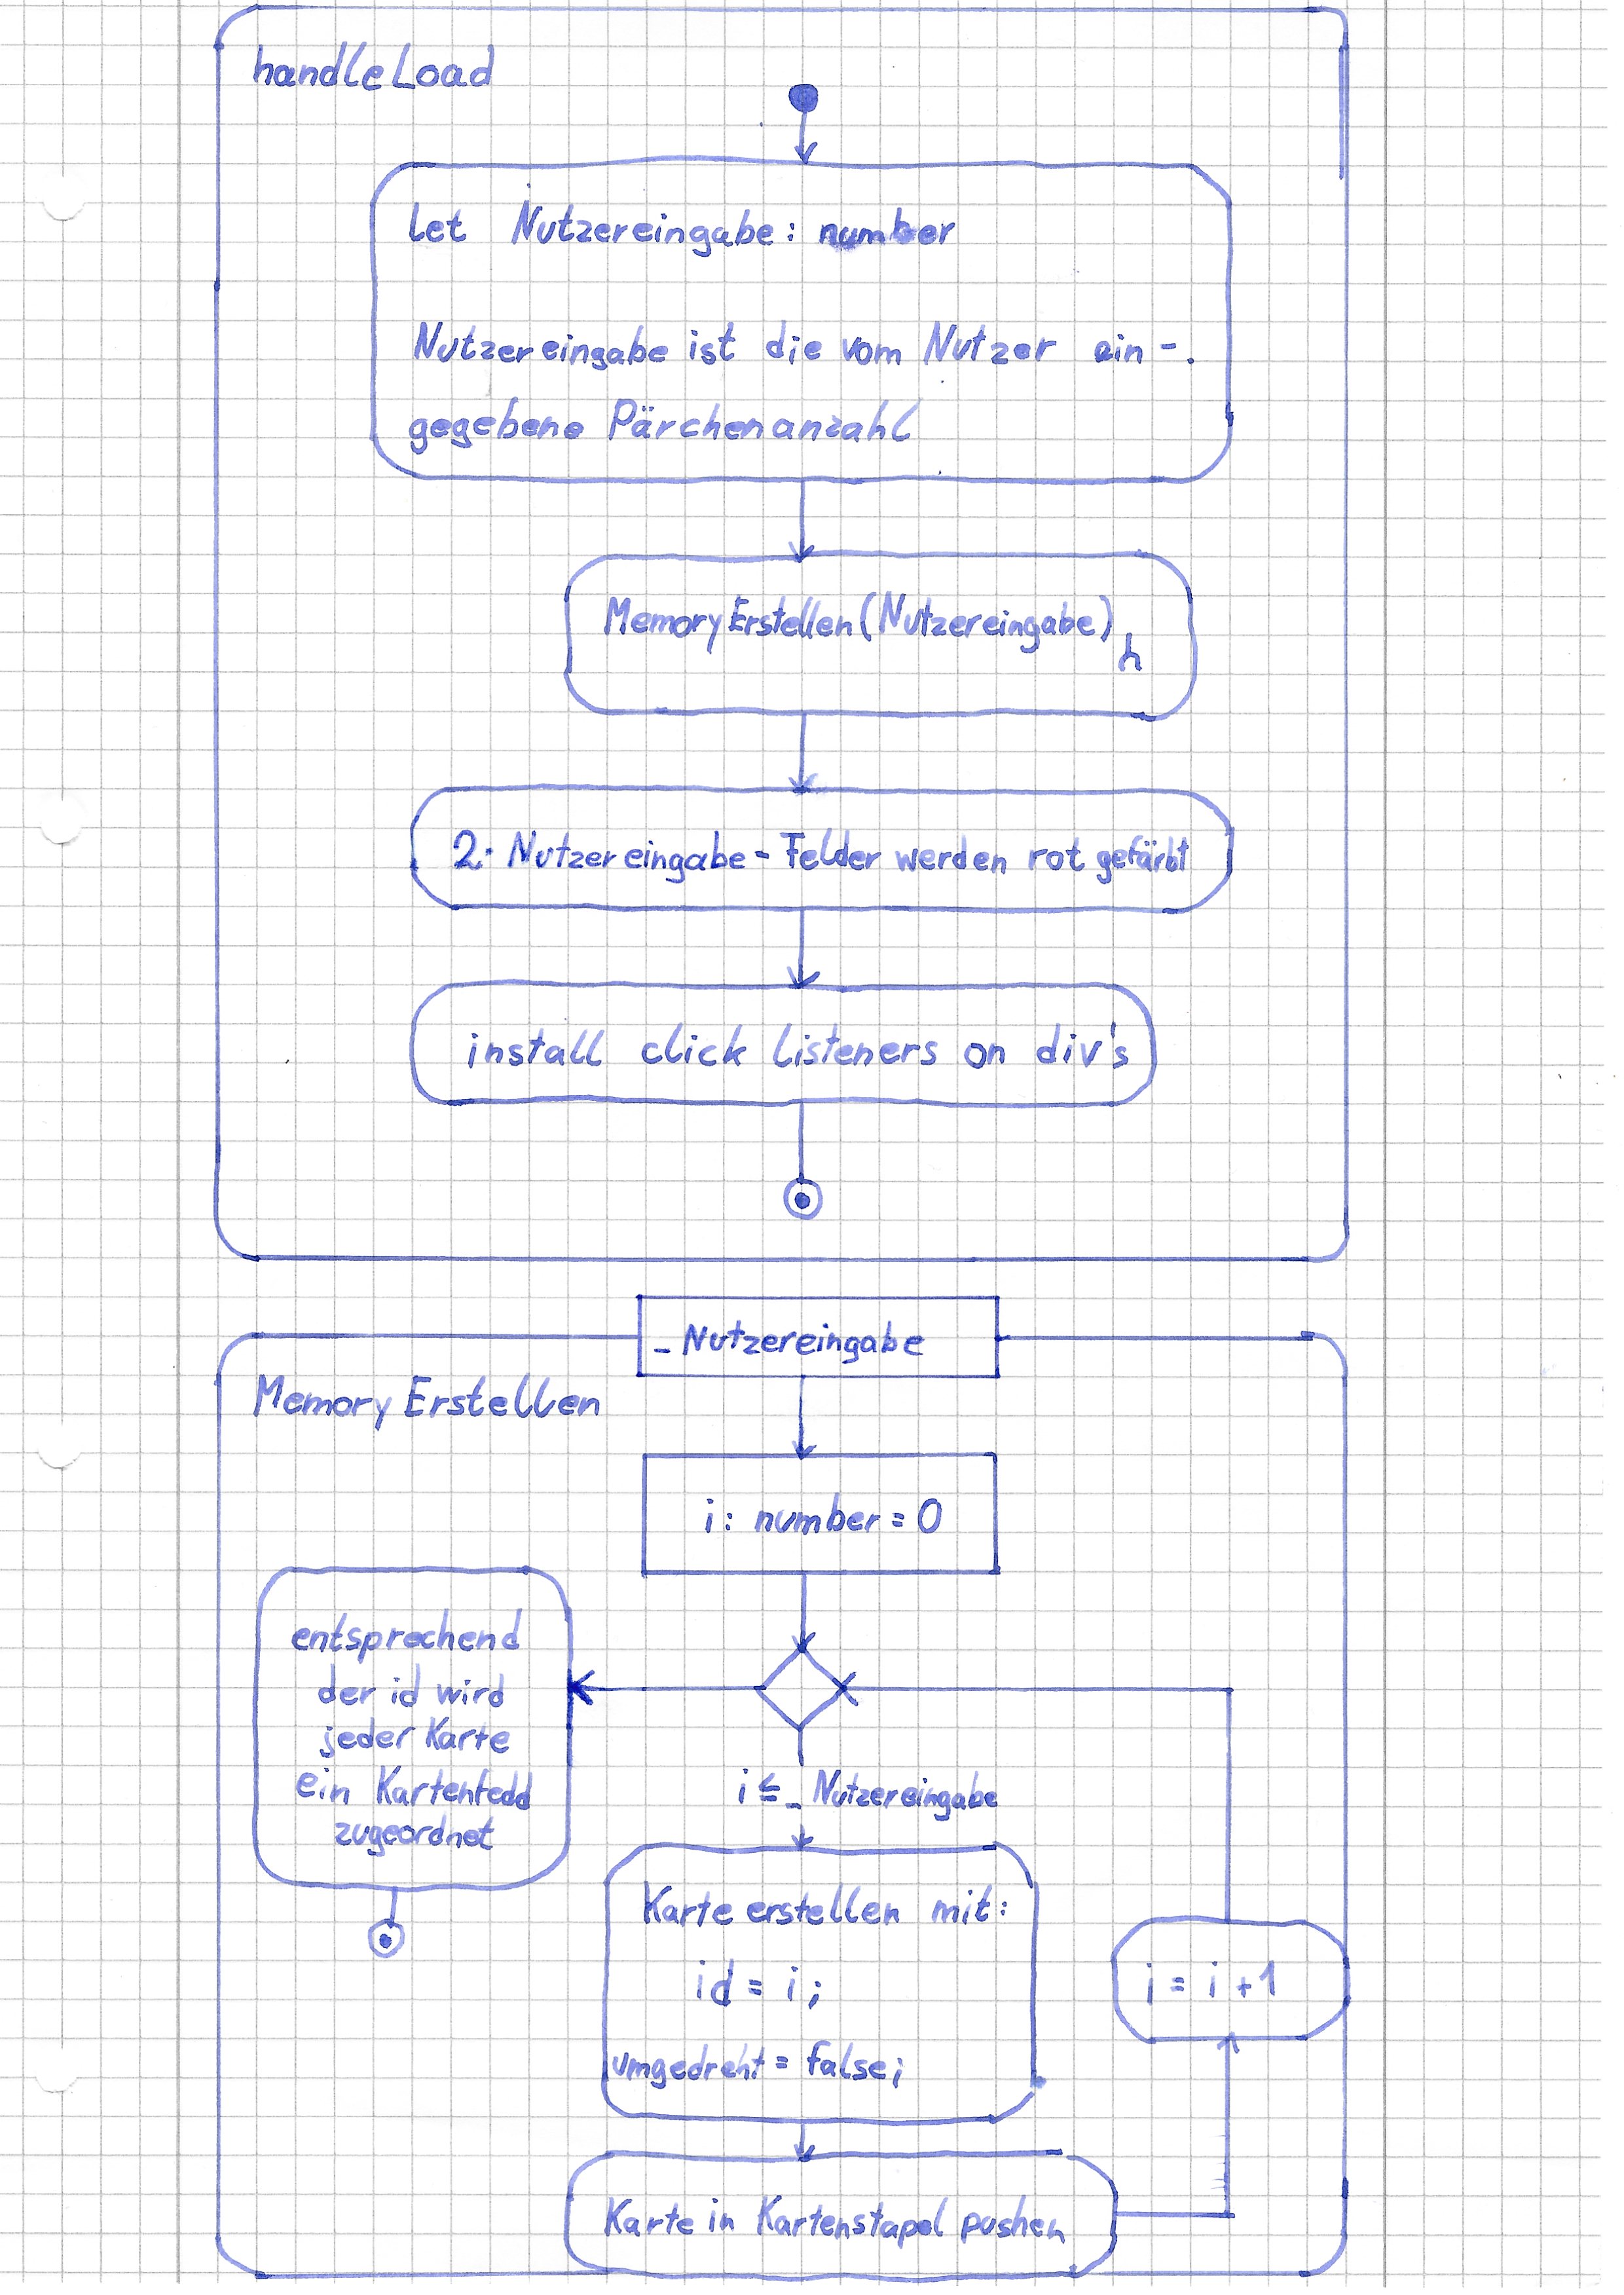 handleLoad
let Nutzereingabe: number
Nutzereingabe ist die vom Nutzer ein-
gegebene Pärchenanzahl
MemoryErstellen(Nutzereingabe)
2· Nutzereingabe - Felder werden rot gefärbt
install click listeners on div's
_Nutzereingabe
MemoryErstellen
i: number = 0
entsprechend
der id wird
jeder Karte
ein
zugeordnet
i ≤ _Nutzereingabe
Karte erstellen mit:
id = i;
umgedreht = false;
i = i + 1
Karte in Kartenstapel pushen